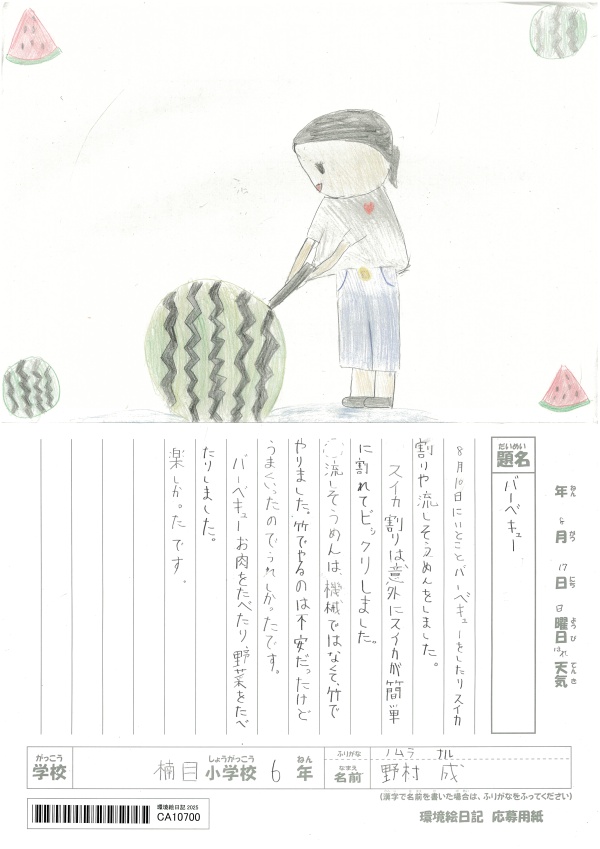 年 月 17日 日曜日 はれ 天気
ねん がつ にち ようび てんき
だいめい
題名
バーベキュー
8月10日にいとことバーベキューをしたりスイカ
割りや流しそうめんをしました。
スイカ割りは意外にスイカが簡単
に割れてビックリしました。
流しそうめんは、機械ではなくて、竹で
やりました。竹でやるのは不安だったけど
うまくいったのでうれしかったです。
バーベキューお肉をたべたり、野菜をたべ
たりしました。
楽しかったです。
がっこう しょうがっこう ねん
学校 楠目 小学校 6 年
ふりがな ノムラ ナル
なまえ
名前 野村 成
(漢字で名前を書いた場合は、ふりがなをふってください)
環境絵日記 2025
CA10700
環境絵日記 応募用紙